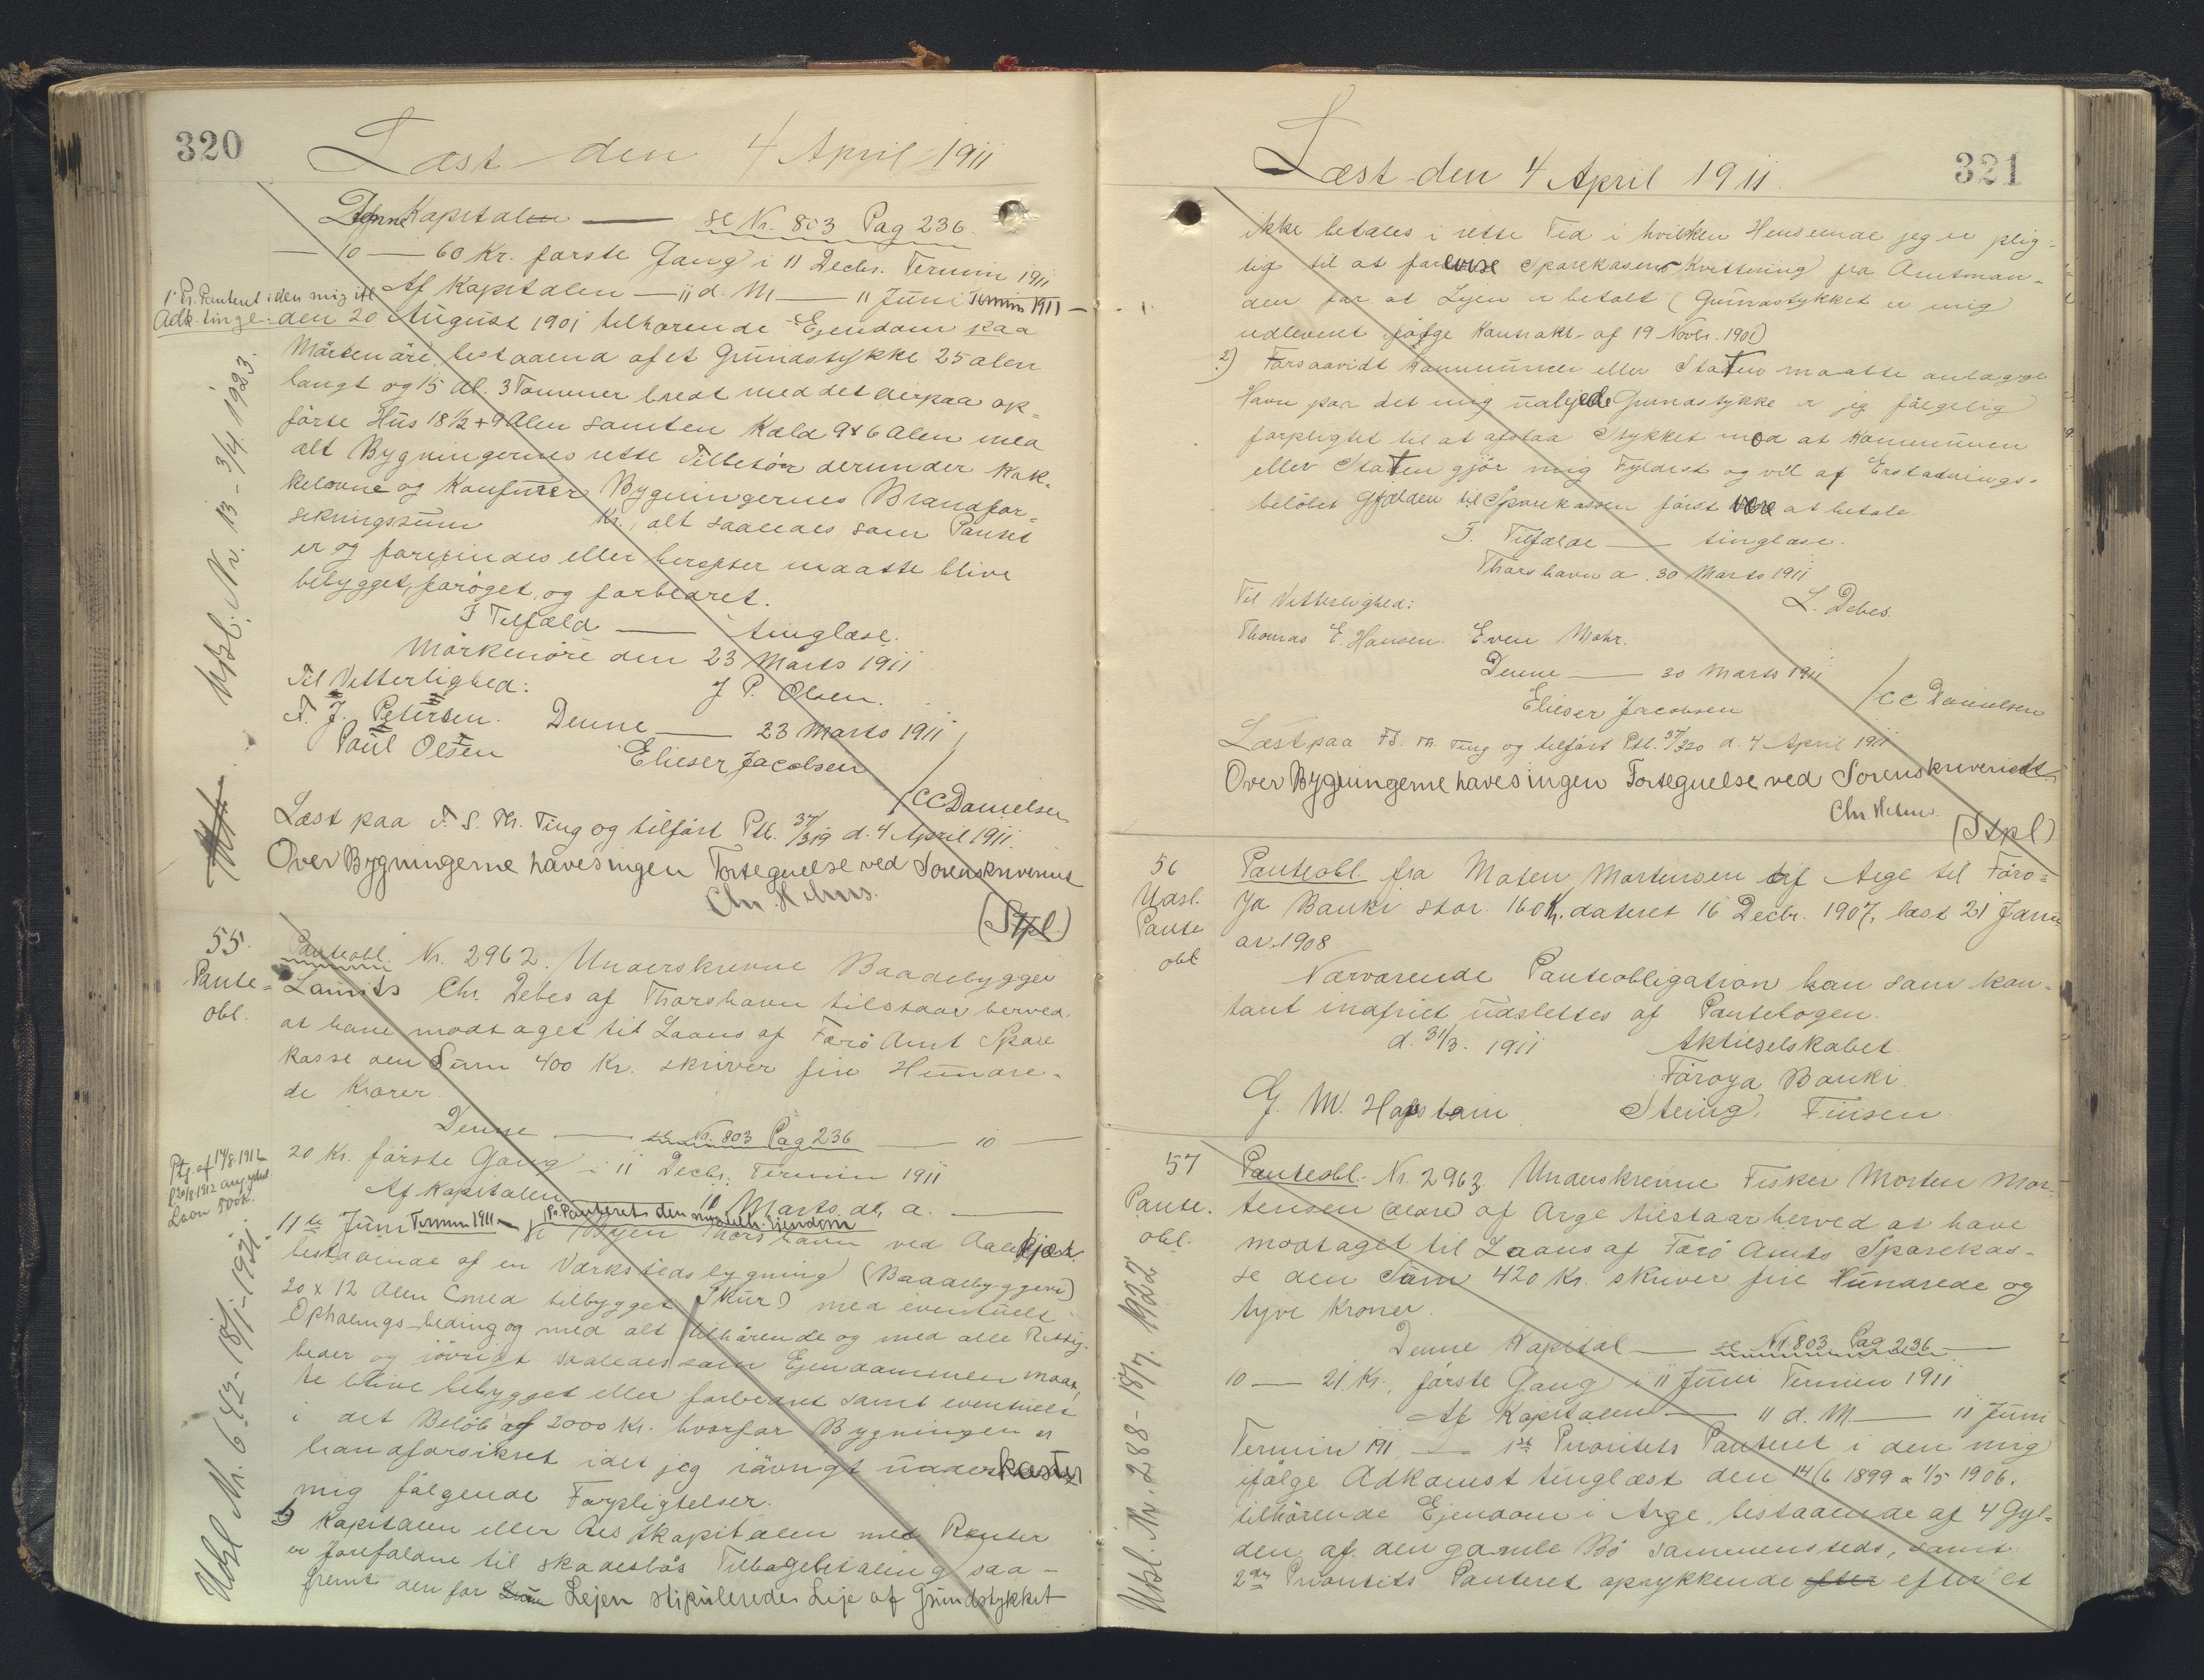 320
Læst den 4 April 1911
Denne Kapital — se Nr. 803 Pag 236.
— 10 — 60 Kr. første Gang i 11 Decbr. Termin 1911
Af Kapitalen — 11 d. M — 11 Juni Termin 1911 —
1' Pr. Panteret i den mig ifl.
Adk. tingl. den 20 August 1901 tilhørende Ejendom paa
bestaaend af et Grundstykke 25 alen
langt og 15 Al. 3 Tommer bredt med det derpaa op=
førte Hus 18 1/2 + 9 Alen samt en Kæld 9 x 6 Alen med
alt Bygningernes rette Tilbehør derunder Kak=
kelovne og Komfurer Bygningernes Brandfor=
sikringssum Kr., alt saaledes som Pantet
er og forefindes eller herefter maatte blive
bebygget, forøget, og forbedret.
I Tilfæld — tinglæse.
Mørkenøre den 23 Marts 1911
Til Vitterlighed: J P. Olsen.
F. J. Petersen. Denne — 23 Marts 1911
Paul Olsen Elieser Jacobsen
/CC Danielsen
Læst paa F. S. Th. Ting og tilført Ptb. 37/319 d. 4 April 1911.
Over Bygningerne haves ingen Fortegnelse ved Sorenskriveriet
Chr. Helms.
(Stpl)
Udsl. Nr. 13 - 3/4 1923.
55.
Pante=
obl.
Panteobl. Nr. 2962. Underskrevne Baadebygger
Laurits Chr. Debes af Thorshavn tilstaar herved,
at have modtaget til Laans af Færø Amt Spare
kasse den Sum 400 Kr. skriver fire Hundre=
de Kroner.
Denne — se Nr. 803 Pag 236 — 10 —
20 Kr. første Gang i 11 Decbr. Termin 1911
Af Kapitalen — 10 Marts d. a. —
11te Juni Termin 1911 — 1' Pr. Panteret i den mig tilh. Ejendom
i Byen Thorshavn ved
bestaaende af en Værkstedsbygning (Baadebyggeri)
20 x 12 Alen (med tilbygget Skur) med eventuelt
Ophalings-beding og med alt tilhørende og med alle Rettig.
heder og iøvrigt saaledes som Ejendommen maat,
te blive bebygget eller forbedret samt eventuelt
i det Beløb af 2000 Kr. hvorfor Bygningen er
brandforsikret idet jeg iøvrigt underkaster
mig følgende Forpligtelser.
1) Kapitalen eller Restkapitalen med Renter
er forefaldne til skadesløs Tilbagebetaling saa-
fremt den for Lejen stipulerede Leje af Grundstykket
Ptg. af 14/8 1912
Laan 500 K.
Udsl Nr. 642 - 18/1 - 1921.
321
Læst den 4 April 1911.
ikke betales i rette Tid i hvilken Henseende jeg er plig-
tig til at forevise Sparekassens Kvittering fra Amtman-
den for at Lejen er betalt (Grundstykket er mig
udleveret ifølge Kontrakt af 19 Novbr. 1901)
2) Forsaavidt Kommunen eller Staten maatte anlægge
Havn paa det mig udlejede Grundstykke er jeg følgelig
forpligtet til at afstaa Stykket mod at Kommunen
eller Staten gjør mig Fyldest og vil af Erstatnings=
beløbet Gjælden til Sparekassen først være at betale.
I. Tilfælde — tinglæse.
Thorshavn d. 30 Marts 1911
Til Vitterlighed: L. Debes.
Thomas E. Hansen. Even Mohr.
Denne — 30 Marts 1911
Elieser Jacobsen /CC Danielsen
Læst paa F.S. Th. Ting og tilført Ptb. 37/320 d. 4 April 1911
Over Bygningerne haves ingen Fortegnelse ved Sorenskriveriet
Chr Helms.
(Stpl)
56
Udsl.
Pante
obl
Panteobl. fra Maten Mortensen af Arge til Føro=
ja Banki stor. 160 K, dateret 16 Decbr. 1907, læst 21 Janu
ar. 1908.
Nærværende Panteobligation kan som kon-
tant indfriet udslettes af Pantebogen.
d. 31/3. 1911 Aktieselskabet.
Føroya Banki.
G. M. Steing. Finsen
57
Pante.
obl.
Panteobl. Nr. 2963. Underskrevne Fisker Morten Mor-
tensen (ældre) af Arge tilstaar herved at have
modtaget til Laans af Færø Amts Sparekas-
se den Sum 420 Kr. skriver fire Hundrede og
tyve Kroner.
Denne Kapital — se Nr 803 Pag 236 —
10 — 21 Kr., første Gang i 11 Juni Termin 1911
Af Kapitalen — 11 d. M. — 11 Juni
Termin 191 — 1ste Prioritets Panteret i den mig
ifølge Adkomst tinglæst den 14/6 1899 & 1/5 1906.
tilhørende Ejendom i Arge, bestaaende af 4 Gyl=
den af den gamle Bø sammensteds, samt
2den Prioritets Panteret oprykkende efter efter et
Udsl. Nr. 288 - 18/7. 1922